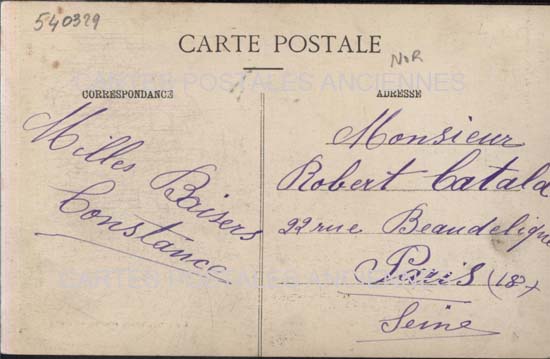 540329
CARTE POSTALE
NOR
CARTES POSTALES ANCIENNES
CORRESPONDANCE
ADRESSE
Milles Baisers
Constance
Monsieur
Robert Catala
22 rue Beaudelique
Paris (18e)
Seine
CARTES POSTALES ANCIENNES